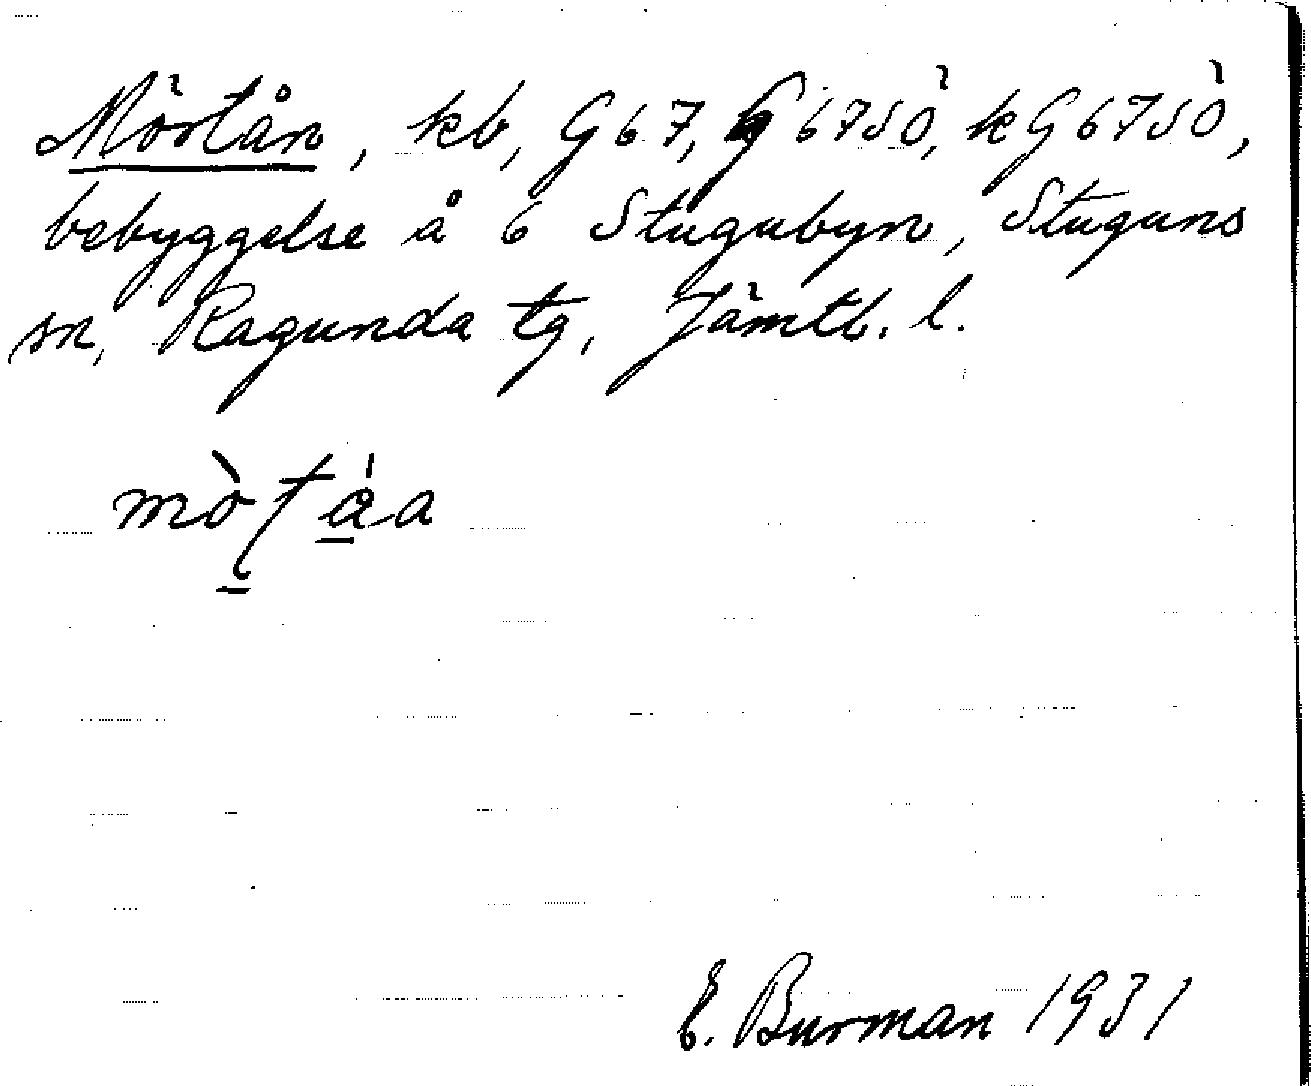 Mörtån, kb, G67, G67SÖ, kG67SÖ,
bebyggelse å 6 Stugubyn, Stuguns
sn, Ragunda tg, Jämtl. l.
mòṭáa
E. Burman 1931